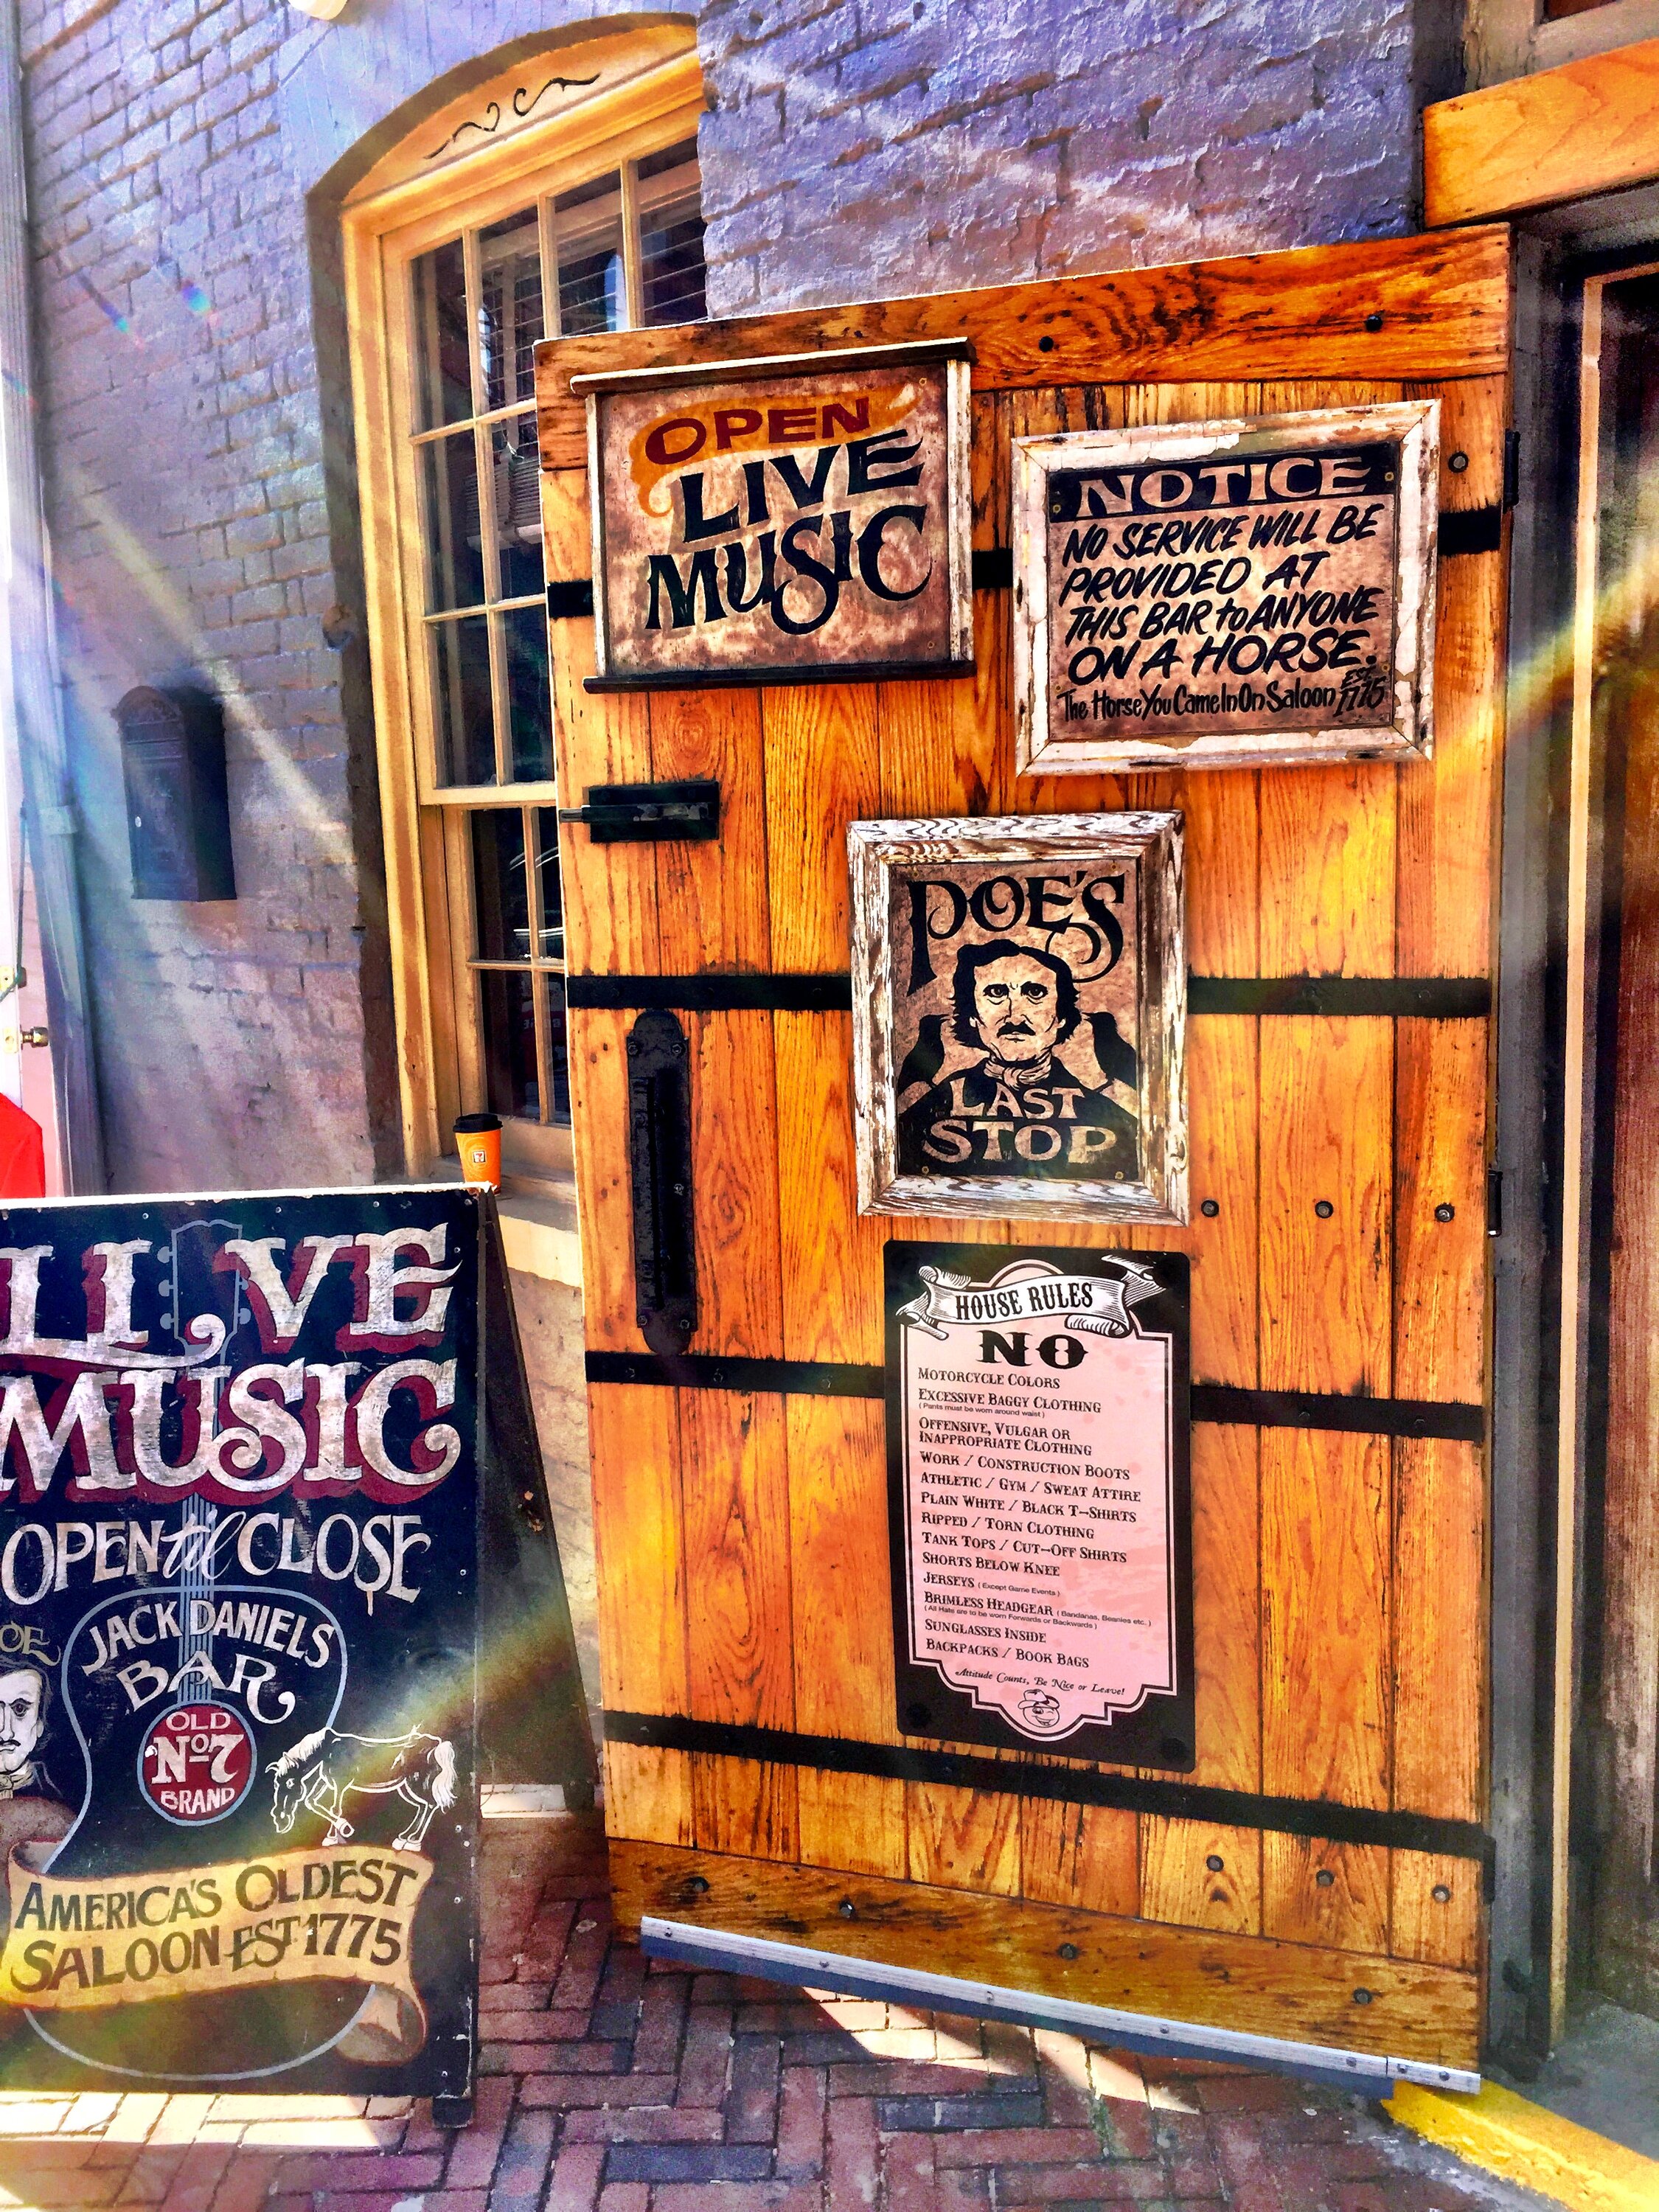 OPEN
LIVE
MUSIC
NOTICE
NO SERVICE WILL BE
PROVIDED AT
THIS BAR to ANYONE
ON A HORSE.
The Horse You Came In On Saloon EST. 1775
POE'S
LAST
STOP
HOUSE RULES
NO
MOTORCYCLE COLORS
EXCESSIVE BAGGY CLOTHING
(Pants must be worn around waist)
OFFENSIVE, VULGAR OR
INAPPROPRIATE CLOTHING
WORK / CONSTRUCTION BOOTS
ATHLETIC / GYM / SWEAT ATTIRE
PLAIN WHITE / BLACK T-SHIRTS
RIPPED / TORN CLOTHING
TANK TOPS / CUT-OFF SHIRTS
SHORTS BELOW KNEE
JERSEYS (Except Game Events)
BRIMLESS HEADGEAR (Bandanas, Beanies etc.)
(All Hats are to be worn Forwards or Backwards)
SUNGLASSES INSIDE
BACKPACKS / BOOK BAGS
Attitude Counts, Be Nice or Leave!
LIVE
MUSIC
OPEN til CLOSE
JACK DANIELS
BAR
OLD
No 7
BRAND
AMERICA'S OLDEST
SALOON EST 1775